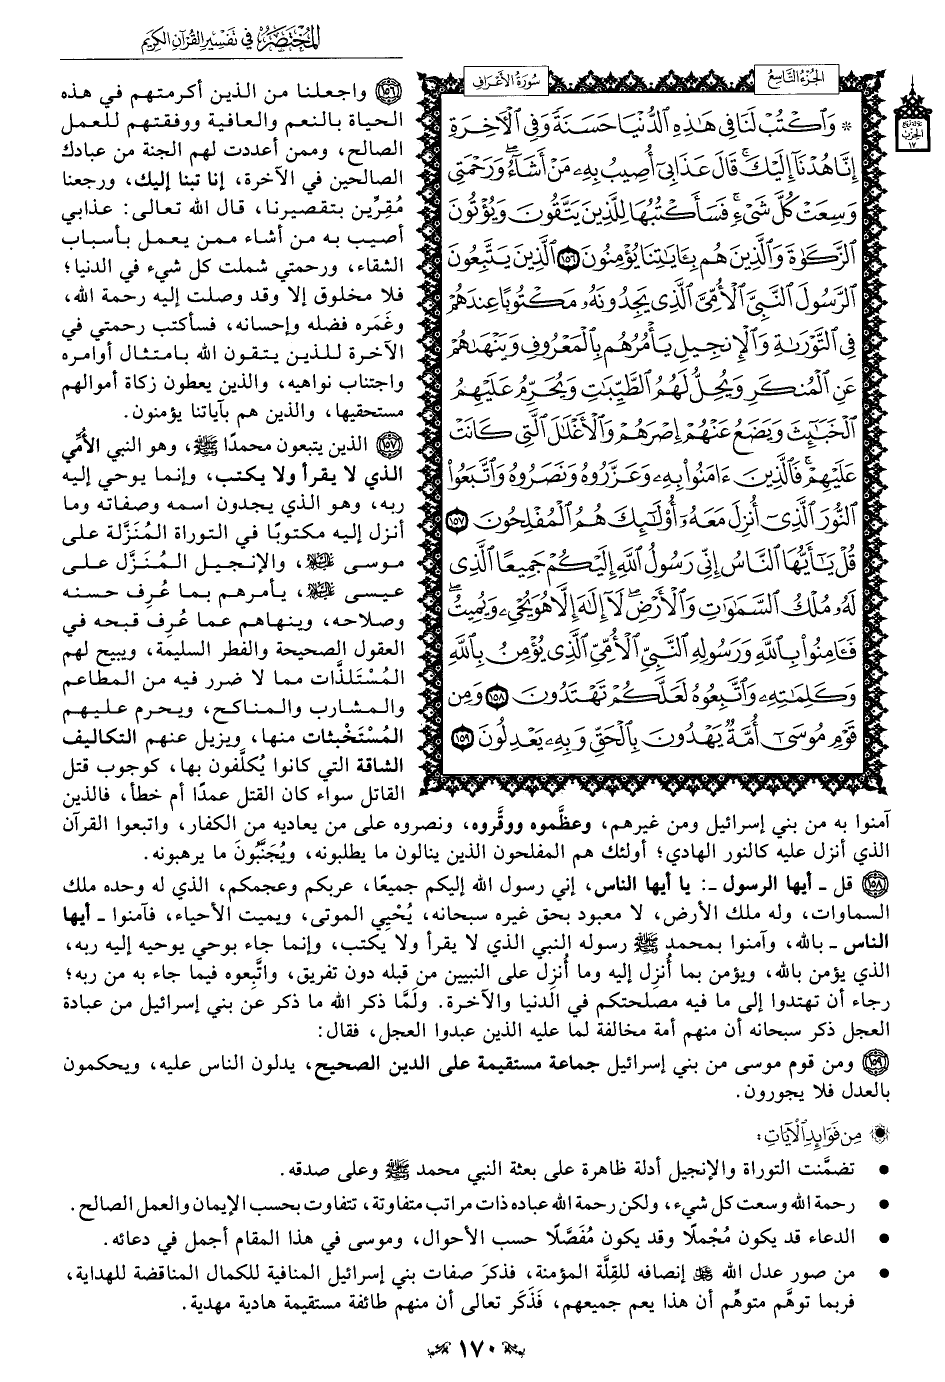 المختصر في تفسير القرآن الكريم
الجزء التاسع
سورة الأعراف
الحزب
١٧
* وَٱكْتُبْ لَنَا فِي هَٰذِهِ ٱلدُّنْيَا حَسَنَةً وَفِي ٱلْأٓخِرَةِ
إِنَّا هُدْنَآ إِلَيْكَۚ قَالَ عَذَابِيٓ أُصِيبُ بِهِۦ مَنْ أَشَآءُۖ وَرَحْمَتِي
وَسِعَتْ كُلَّ شَيْءٍۚ فَسَأَكْتُبُهَا لِلَّذِينَ يَتَّقُونَ وَيُؤْتُونَ
ٱلزَّكَوٰةَ وَٱلَّذِينَ هُم بِـَٔايَٰتِنَا يُؤْمِنُونَ ١٥٦ ٱلَّذِينَ يَتَّبِعُونَ
ٱلرَّسُولَ ٱلنَّبِيَّ ٱلْأُمِّيَّ ٱلَّذِي يَجِدُونَهُۥ مَكْتُوبًا عِندَهُمْ
فِي ٱلتَّوْرَىٰةِ وَٱلْإِنجِيلِ يَأْمُرُهُم بِٱلْمَعْرُوفِ وَيَنْهَىٰهُمْ
عَنِ ٱلْمُنكَرِ وَيُحِلُّ لَهُمُ ٱلطَّيِّبَٰتِ وَيُحَرِّمُ عَلَيْهِمُ
ٱلْخَبَٰٓئِثَ وَيَضَعُ عَنْهُمْ إِصْرَهُمْ وَٱلْأَغْلَٰلَ ٱلَّتِي كَانَتْ
عَلَيْهِمْۚ فَٱلَّذِينَ ءَامَنُواْ بِهِۦ وَعَزَّرُوهُ وَنَصَرُوهُ وَٱتَّبَعُواْ
ٱلنُّورَ ٱلَّذِيٓ أُنزِلَ مَعَهُۥٓ أُوْلَٰٓئِكَ هُمُ ٱلْمُفْلِحُونَ ١٥٧
قُلْ يَٰٓأَيُّهَا ٱلنَّاسُ إِنِّي رَسُولُ ٱللَّهِ إِلَيْكُمْ جَمِيعًا ٱلَّذِي
لَهُۥ مُلْكُ ٱلسَّمَٰوَٰتِ وَٱلْأَرْضِۖ لَآ إِلَٰهَ إِلَّا هُوَ يُحْيِۦ وَيُمِيتُۖ
فَـَٔامِنُواْ بِٱللَّهِ وَرَسُولِهِ ٱلنَّبِيِّ ٱلْأُمِّيِّ ٱلَّذِي يُؤْمِنُ بِٱللَّهِ
وَكَلِمَٰتِهِۦ وَٱتَّبِعُوهُ لَعَلَّكُمْ تَهْتَدُونَ ١٥٨ وَمِن
قَوْمِ مُوسَىٰٓ أُمَّةٌ يَهْدُونَ بِٱلْحَقِّ وَبِهِۦ يَعْدِلُونَ ١٥٩
١٥٦ واجعلنا من الذين أكرمتهم في هذه
الحياة بالنعم والعافية ووفقتهم للعمل
الصالح، وممن أعددت لهم الجنة من عبادك
الصالحين في الآخرة، إنا تبنا إليك، ورجعنا
مُقِرِّين بتقصيرنا، قال الله تعالى: عذابي
أصيب به من أشاء ممن يعمل بأسباب
الشقاء، ورحمتي شملت كل شيء في الدنيا؛
فلا مخلوق إلا وقد وصلت إليه رحمة الله،
وغَمَره فضله وإحسانه، فسأكتب رحمتي في
الآخرة للذين يتقون الله بامتثال أوامره
واجتناب نواهيه، والذين يعطون زكاة أموالهم
مستحقيها، والذين هم بآياتنا يؤمنون.
١٥٧ الذين يتبعون محمدًا ﷺ، وهو النبي الأُمِّي
الذي لا يقرأ ولا يكتب، وإنما يوحي إليه
ربه، وهو الذي يجدون اسمه وصفاته وما
أنزل إليه مكتوبًا في التوراة المُنَزَّلة على
موسى ﵇، والإنجيل المُنَزَّل على
عيسى ﵇، يأمرهم بما عُرِف حسنه
وصلاحه، وينهاهم عما عُرِف قبحه في
العقول الصحيحة والفطر السليمة، ويبيح لهم
المُسْتَلذَّات مما لا ضرر فيه من المطاعم
والمشارب والمناكح، ويحرم عليهم
المُسْتَخْبثات منها، ويزيل عنهم التكاليف
الشاقة التي كانوا يُكلَّفون بها، كوجوب قتل
القاتل سواء كان القتل عمدًا أم خطأ، فالذين
آمنوا به من بني إسرائيل ومن غيرهم، وعظَّموه ووقَّروه، ونصروه على من يعاديه من الكفار، واتبعوا القرآن
الذي أنزل عليه كالنور الهادي؛ أولئك هم المفلحون الذين ينالون ما يطلبونه، ويُجَنَّبُونَ ما يرهبونه.
١٥٨ قل ـ أيها الرسول ـ: يا أيها الناس، إني رسول الله إليكم جميعًا، عربكم وعجمكم، الذي له وحده ملك
السماوات، وله ملك الأرض، لا معبود بحق غيره سبحانه، يُحْيِي الموتى، ويميت الأحياء، فآمنوا ـ أيها
الناس ـ بالله، وآمنوا بمحمد ﷺ رسوله النبي الذي لا يقرأ ولا يكتب، وإنما جاء بوحي يوحيه إليه ربه،
الذي يؤمن بالله، ويؤمن بما أُنزِل إليه وما أُنزِل على النبيين من قبله دون تفريق، واتَّبِعوه فيما جاء به من ربه؛
رجاء أن تهتدوا إلى ما فيه مصلحتكم في الدنيا والآخرة. ولَمَّا ذكر الله ما ذكر عن بني إسرائيل من عبادة
العجل ذكر سبحانه أن منهم أمة مخالفة لما عليه الذين عبدوا العجل، فقال:
١٥٩ ومن قوم موسى من بني إسرائيل جماعة مستقيمة على الدين الصحيح، يدلون الناس عليه، ويحكمون
بالعدل فلا يجورون.
من فوائد الآيات:
• تضمَّنت التوراة والإنجيل أدلة ظاهرة على بعثة النبي محمد ﷺ وعلى صدقه.
• رحمة الله وسعت كل شيء، ولكن رحمة الله عباده ذات مراتب متفاوتة، تتفاوت بحسب الإيمان والعمل الصالح.
• الدعاء قد يكون مُجْملًا وقد يكون مُفَصَّلًا حسب الأحوال، وموسى في هذا المقام أجمل في دعائه.
• من صور عدل الله ﷿ إنصافه للقِلَّة المؤمنة، فذكرَ صفات بني إسرائيل المنافية للكمال المناقضة للهداية،
فربما توهَّم متوهِّم أن هذا يعم جميعهم، فَذَكَر تعالى أن منهم طائفة مستقيمة هادية مهدية.
١٧٠